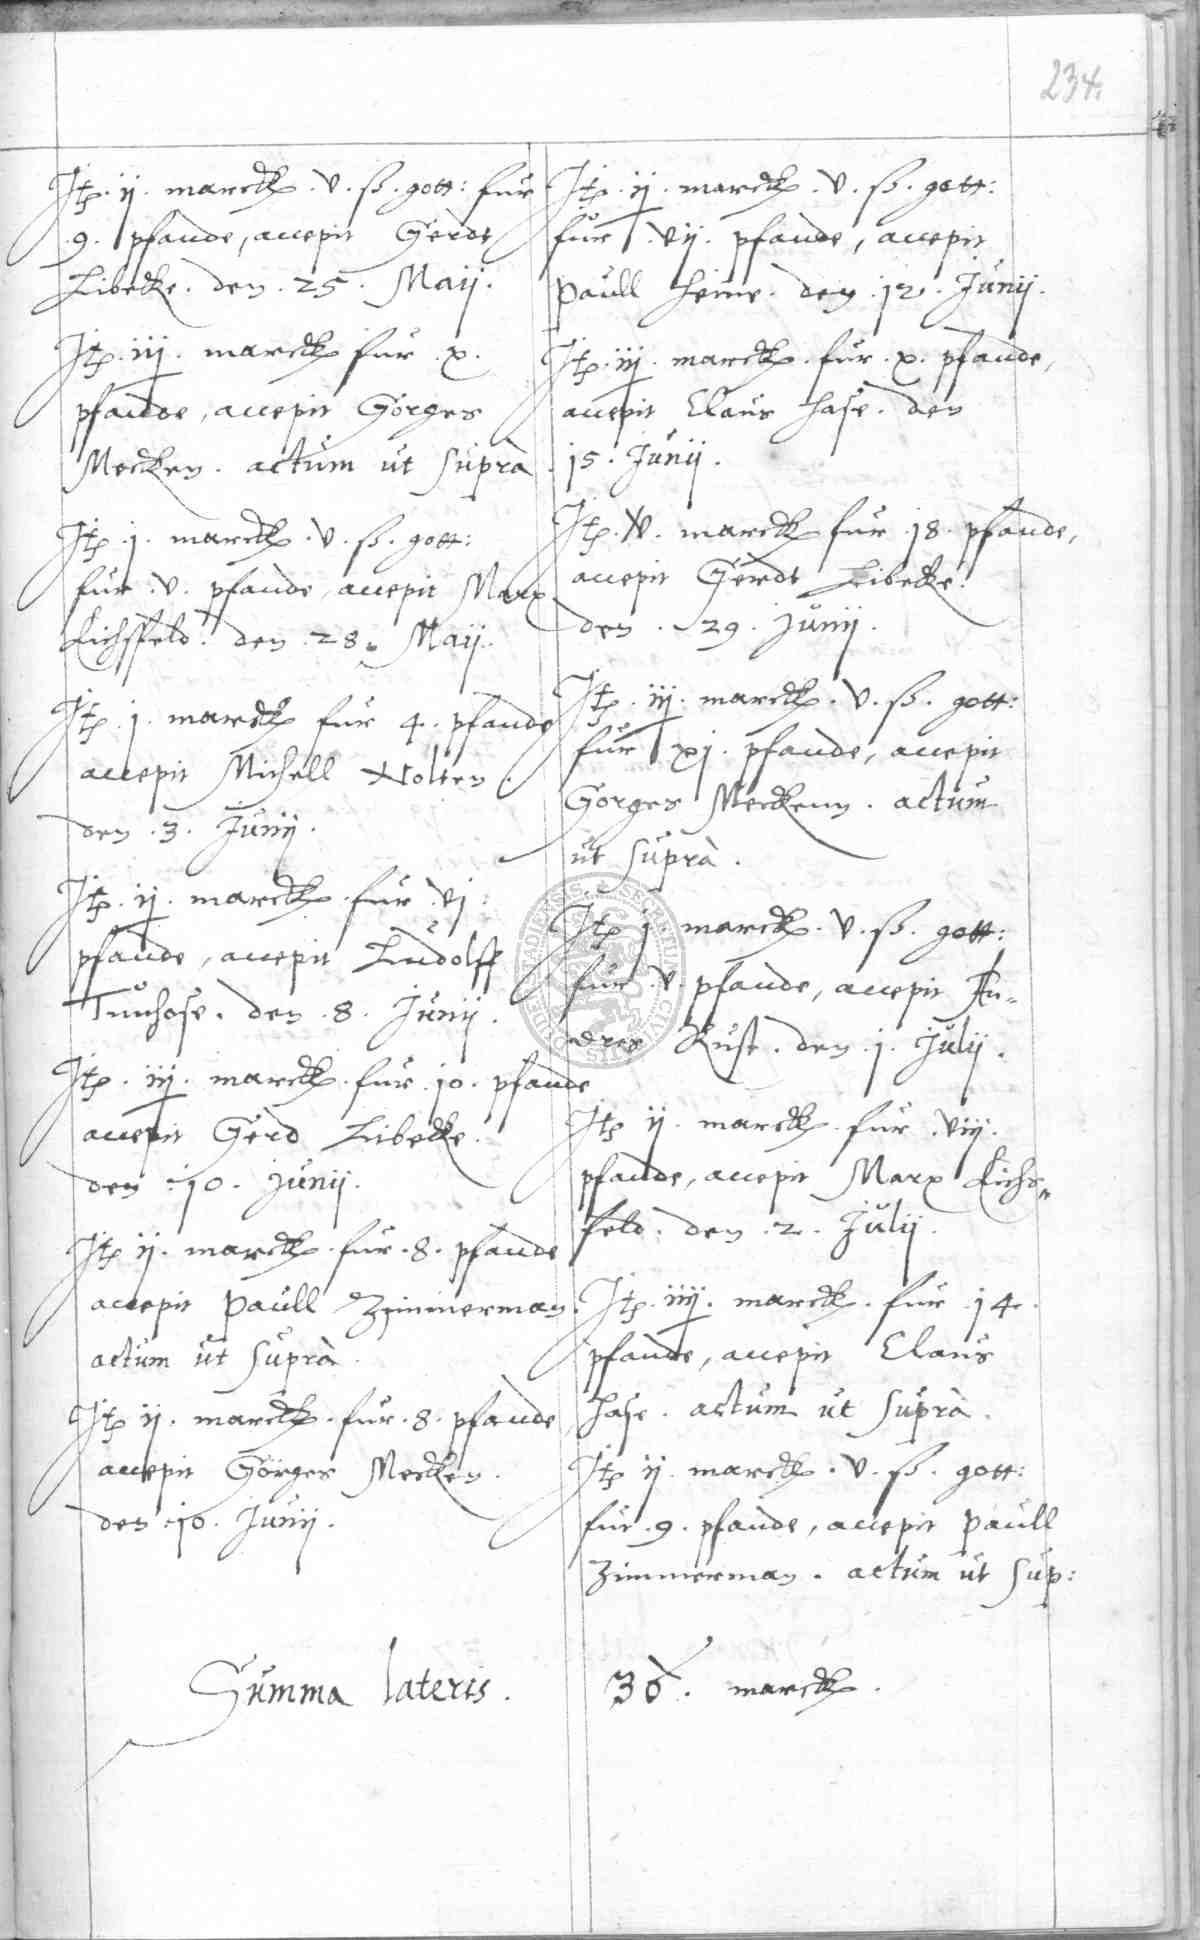 234.
Itē. ij. marck. v. ß. gott: fur
.9. pfande, accepit Gerdt
Libecke. den .25. Maij.
Itē. iij. marck fur .x.
pfande, accepit Görges
Mecken. actum ut suprà.
Itē. j. marck. v. ß. gott:
fur .v. pfande, accepit Marx
Lichsfeld. den .28. Maij.
Itē. j. marck fur 4. pfande
accepit Michell Nolten.
den .3. Junij.
Itē. ij. marck. fur vj.
pfande, accepit Ludolff
den .8. Junij.
Itē. iij. marck. fur .10. pfande
accepit Gerd Libecke.
den .10. Junij.
Itē ij. marck. fur .8. pfande
accepit Paull Zimmerman.
actum ut suprà.
Itē ij. marck. fur .8. pfande
accepit Görges Mecken.
den .10. Junij.
Itē. ij. marck. v. ß. gott:
fur .vij. pfande, accepit
Paull Heine. den .12. Junij.
Itē. iij. marck. fur .x. pfande,
accepit Claus Hase. den
.15. Junij.
Itē. marck fur .18. pfande,
accepit Gerdt Libecke.
den .29. Junij.
Itē. iij. marck. v. ß. gott:
fur xj. pfande, accepit
Görges Meckenn. actum
ut suprà.
Itē j. marck. v. ß. gott:
fur .v. pfande, accepit An-
dres Rust. den .1. Julij.
Itē ij. marck. fur .viij.
pfande, accepit Marx Lichs-
feld. den .2. Julij.
Itē. iiij. marck. fur .14.
pfande, accepit Claus
Hase. actum ut suprà.
Itē ij. marck. v. ß. gott:
fur .9. pfande, accepit Paull
Zimmerman. actum ut sup:
Summa lateris. marck.
SECRETUM CIVIUM